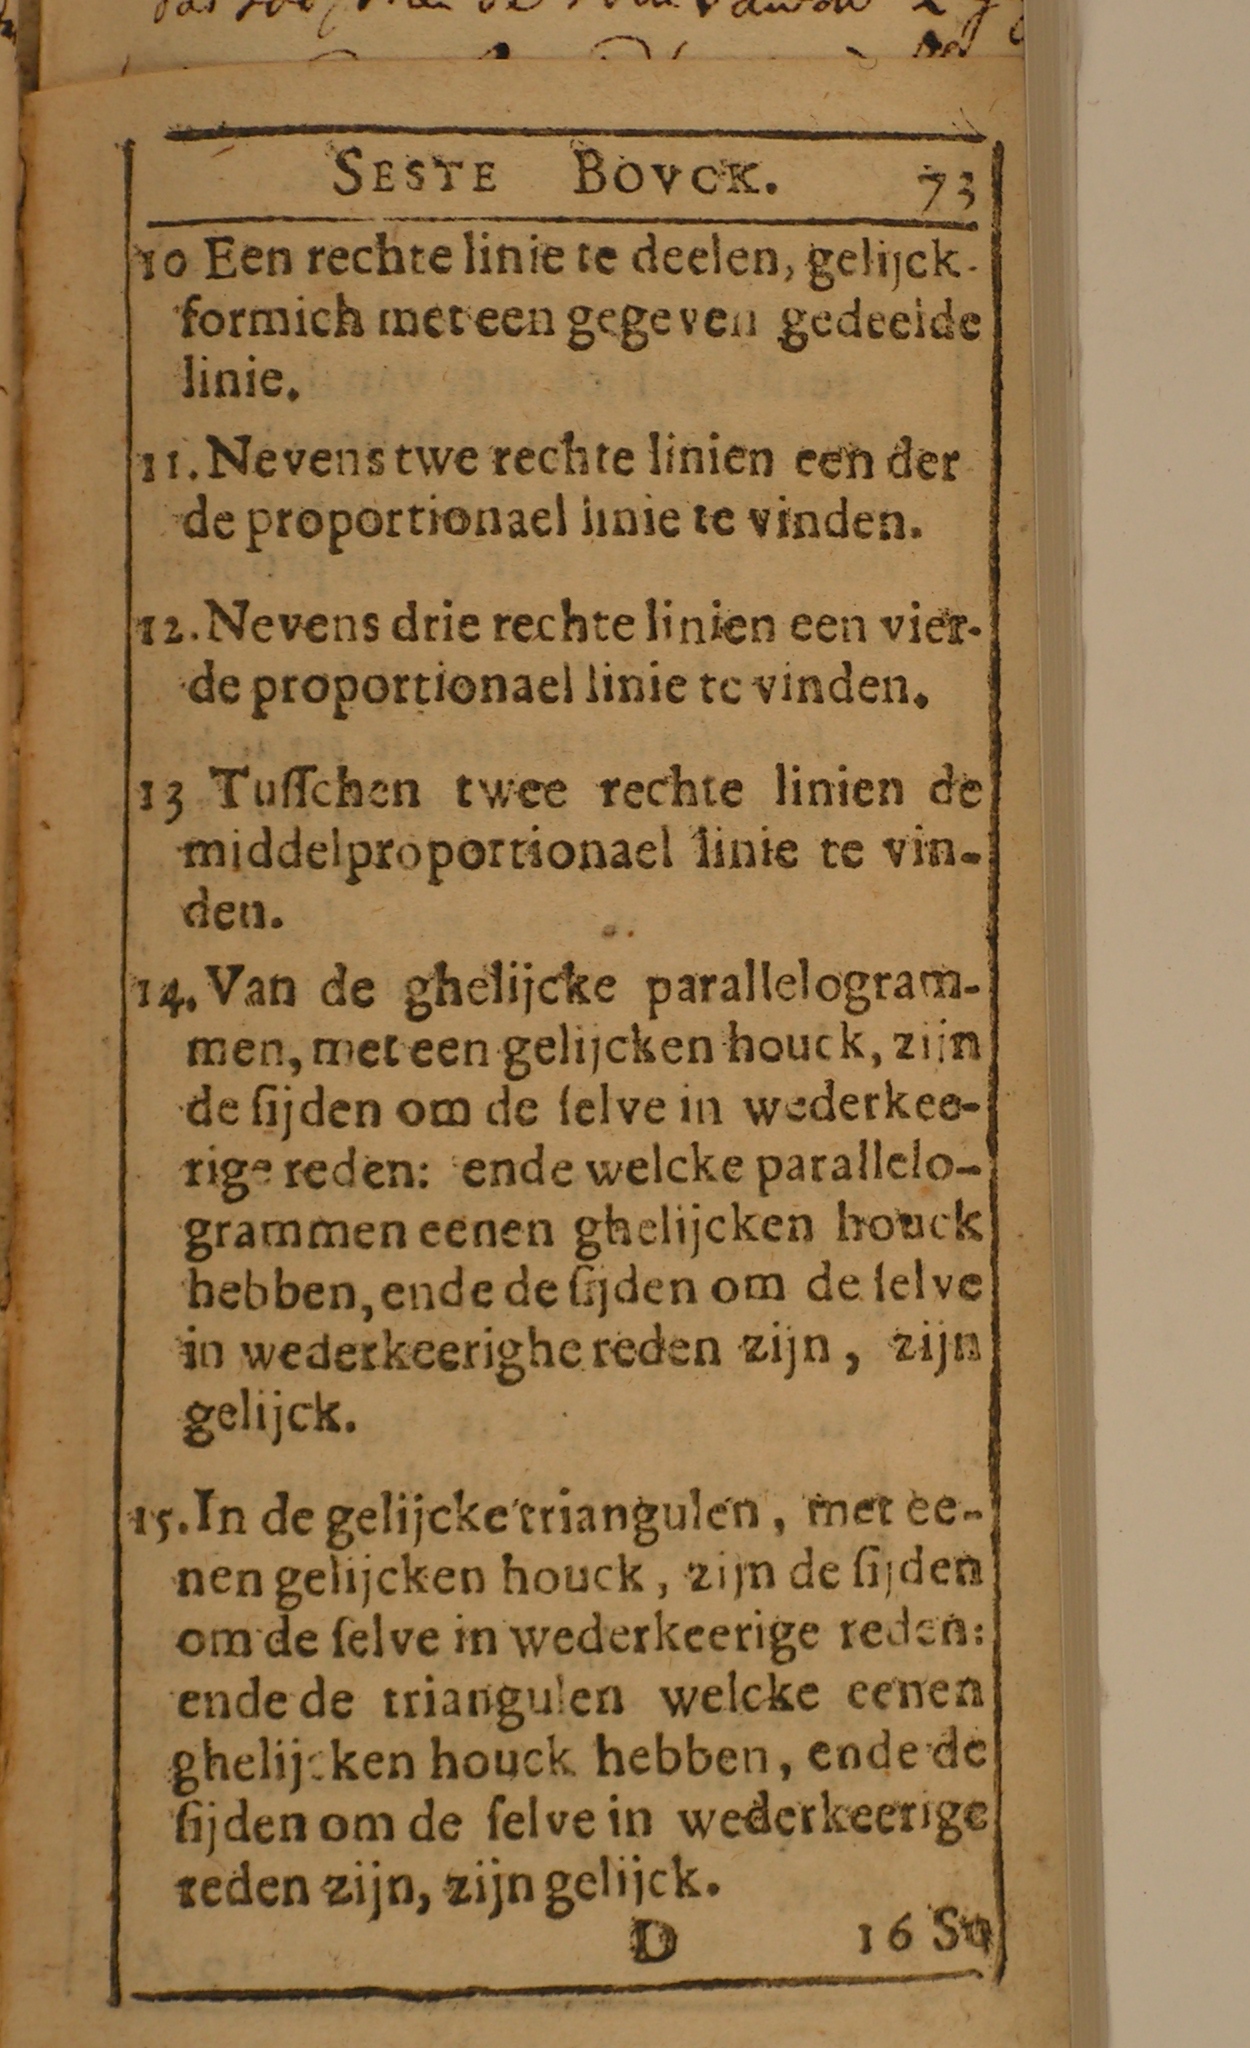 SESTE BOVCK. 73
10 Een rechte linie te deelen, gelijck-
formich met een gegeven gedeelde
linie.
11. Nevens twe rechte linien een der
de proportionael linie te vinden.
12. Nevens drie rechte linien een vier-
de proportionael linie te vinden.
13 Tuſſchen twee rechte linien de
middelproportionael linie te vin-
den.
14. Van de ghelijcke parallelogram-
men, met een gelijcken houck, zijn
de ſijden om de ſelve in wederkee-
rige reden: ende welcke parallelo-
grammen eenen ghelijcken houck
hebben, ende de ſijden om de ſelve
in wederkeerighe reden zijn, zijn
gelijck.
15. In de gelijcke triangulen, met ee-
nen gelijcken houck, zijn de ſijden
om de ſelve in wederkeerige reden:
ende de triangulen welcke eenen
ghelijcken houck hebben, ende de
ſijden om de ſelve in wederkeerige
reden zijn, zijn gelijck.
D 16 So